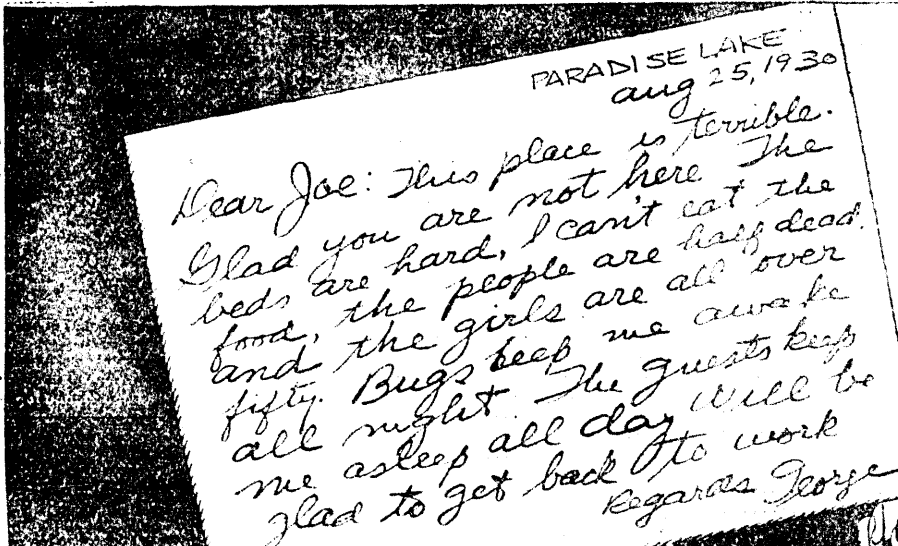 PARADISE LAKE
Aug 25, 1930
Dear Joe: This place is terrible.
Glad you are not here The
beds are hard, I can't eat the
food, the people are half dead.
and the girls are all over
fifty. Bugs keep me awake
all night. The guests keep
me asleep all day Will be
glad to get back to work
Regards George